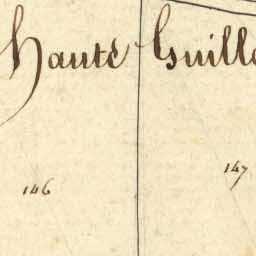 hauté Guill
146
147